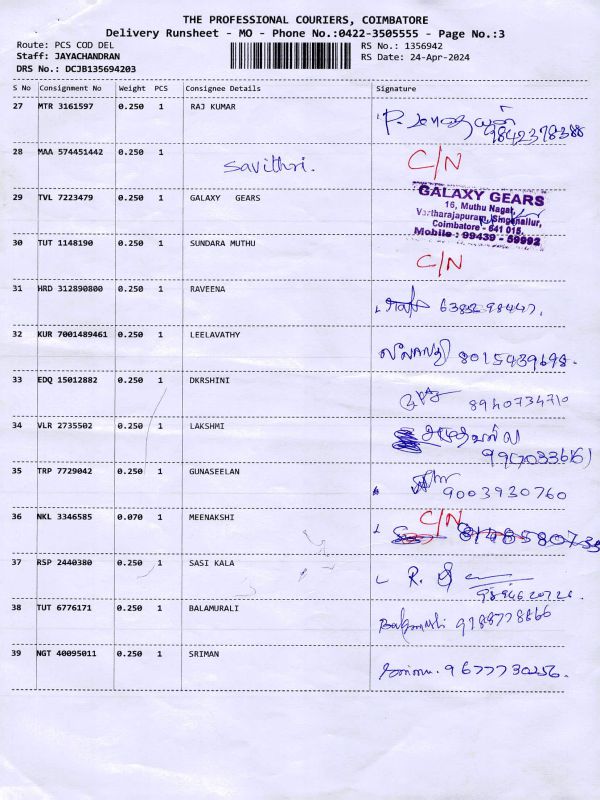 THE PROFESSIONAL COURIERS, COIMBATORE
Delivery Runsheet - MO - Phone No.:0422-3505555 - Page No.:3
Route: PCS COD DEL RS No.: 1356942
Staff: JAYACHANDRAN RS Date: 24-Apr-2024
DRS No.: DCJB135694203
S No Consignment No Weight PCS Consignee Details Signature
27 MTR 3161597 0.250 1 RAJ KUMAR
9842378388
28 MAA 574451442 0.250 1 Savithri. C/N
29 TVL 7223479 0.250 1 GALAXY GEARS
GALAXY GEARS
16, Muthu Nagar,
Vartharajapuram, Singanallur,
Coimbatore - 641 015.
Mobile : 99439 - 59992
30 TUT 1148190 0.250 1 SUNDARA MUTHU
C/N
31 HRD 312890800 0.250 1 RAVEENA
6382298447.
32 KUR 7001489461 0.250 1 LEELAVATHY
லீலாவதி 8015439698.
33 EDQ 15012882 0.250 1 DKRSHINI
8940734710
34 VLR 2735502 0.250 1 LAKSHMI
35 TRP 7729042 0.250 1 GUNASEELAN
9003930760
36 NKL 3346585 0.070 1 MEENAKSHI C/N
37 RSP 2440380 0.250 1 SASI KALA
38 TUT 6776171 0.250 1 BALAMURALI
Balamurali 9188778866
39 NGT 40095011 0.250 1 SRIMAN
9677730256.